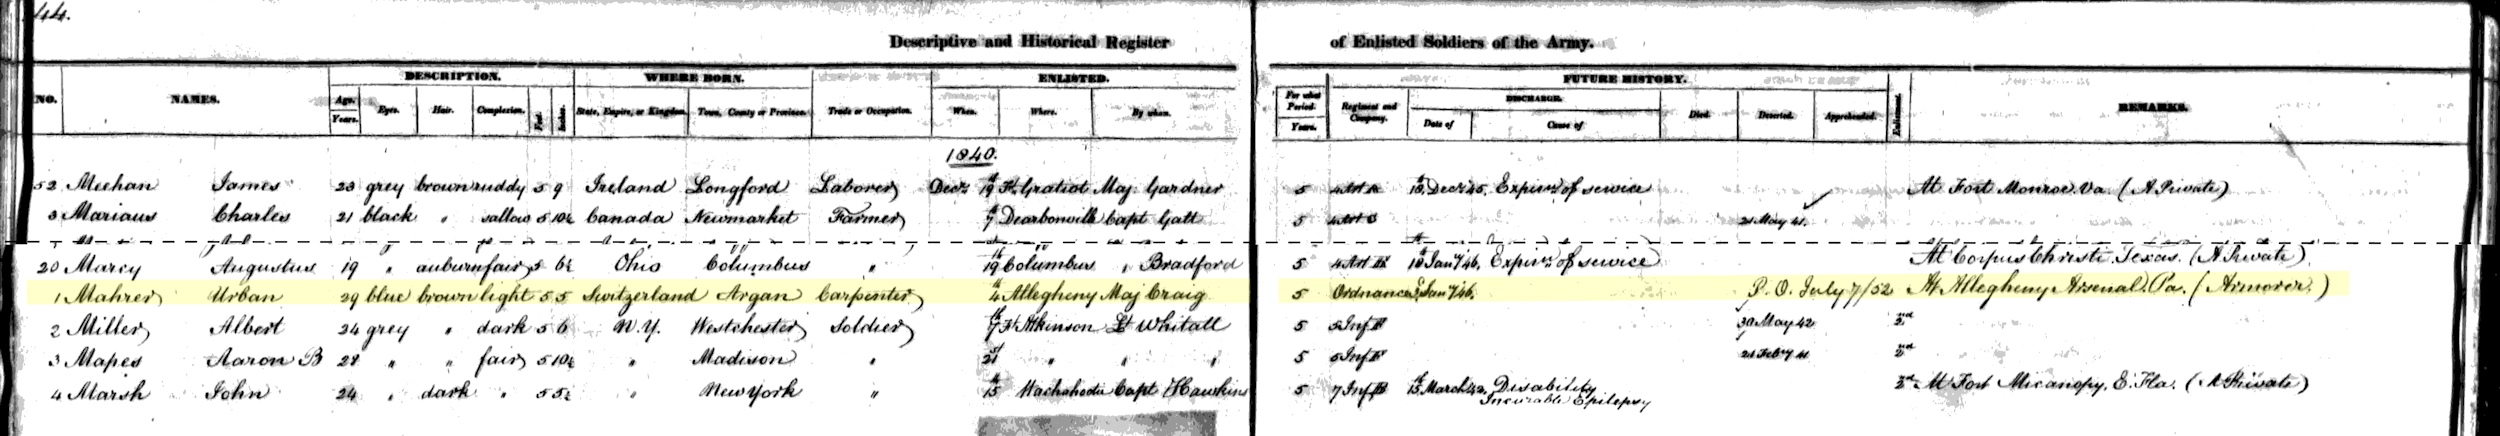 44.
Descriptive and Historical Register of Enlisted Soldiers of the Army.
DESCRIPTION. WHERE BORN. ENLISTED. FUTURE HISTORY.
NO. NAMES. Age. Eyes. Hair. Complexion. Feet Inches State, Empire, or Kingdom. Town, County or Province. Trade or Occupation. When. Where. By whom. For what Period. Regiment and Company. DISCHARGE. Died. Deserted. Apprehended. Enlistment. REMARKS.
Years. Years. Date of Cause of
1840.
52 Meehan James 23 grey brown ruddy 5 9 Ireland Longford Laborer Decr 19th Ft. Gratiot Maj. Gardner 5 4 Art 18th Decr 45. Expirn of service At Fort Monroe. Va. (A Private)
3 Mariaus Charles 21 black " sallow 5 10½ Canada Newmarket Farmer 7th Dearbonville Capt Galt 5 4 Art 21 May 41.
20 Marcy Augustus 19 " auburn fair 5 6½ Ohio Columbus " 19th Columbus " Bradford 5 4 Art 18th Jany 46. Expirn of service At Corpus Christi. Texas. (A Private)
1 Mahrer Urban 29 blue brown light 5 5 Switzerland Argan Carpenter 4th Allegheny Maj Craig 5 Ordnance Jany 46. P. O. July 7/52 At Allegheny Arsenal. Pa. (Armorer.)
2 Miller Albert 24 grey " dark 5 6 N.Y. Westchester Soldier 7th Ft Atkinson Lt Whitall 5 5 Inf 30 May 42 2nd
3 Mapes Aaron B 28 " " fair 5 10½ " Madison " 21st " " " 5 5 Inf 21 Feby 41 2nd
4 Marsh John 24 " dark " 5 5½ " New York " 15th Wachahoota Capt Hawkins 5 7 Inf 15th March 42. Disability 2nd At Fort Micanopy, E. Fla. (A Private)
Incurable Epilepsy